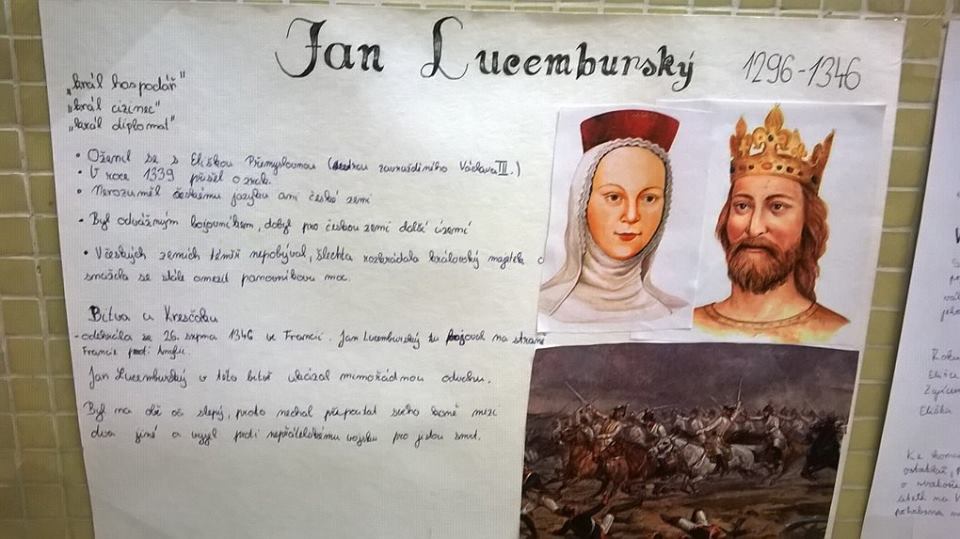 Jan Lucemburský 1296-1346
„král hospodář"
„král cizinec"
„král diplomat"
• Oženil se s Eliškou Přemyslovnou (sestrou zavražděného Václava III.)
• V roce 1339 přišel o zrak.
• Nerozuměl českému jazyku ani české zemi
• Byl odvážným bojovníkem, dobyl pro českou zemi další území
• V českých zemích téměř nepobýval, šlechta rozkrádala královský majetek
snažila se stále omezit panovníkovu moc.
Bitva u Kresčaku
- odehrála se 26. srpna 1346 ve Francii. Jan Lucemburský tu bojoval na straně
Francie proti Anglii.
Jan Lucemburský v této bitvě ukázal mimořádnou odvahu.
Byl na obě oči slepý, proto nechal připoutat svého koně mezi
dva jiné a vyjel proti nepřátelskému vojsku pro jistou smrt.
Roku
Elišce
Zajícem
Eliška